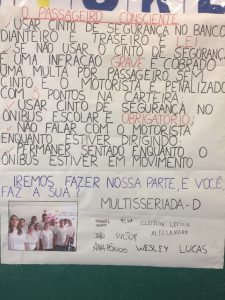 O PASSAGEIRO CONSCIENTE
✓ USAR CINTO DE SEGURANÇA NO BANCO
DIANTEIRO E TRASEIRO É LEI
✓ SE NÃO USAR O CINTO DE SEGURANÇA
É UMA INFRAÇÃO GRAVE E COBRADO
UMA MULTA POR PASSAGEIRO SEM
CINTO E O MOTORISTA É PENALIZADO
COM 5 PONTOS NA CARTEIRA
✓ USAR CINTO DE SEGURANÇA NO
ÔNIBUS ESCOLAR É OBRIGATÓRIO;
✓ NÃO FALAR COM O MOTORISTA
ENQUANTO ESTIVER DIRIGINDO
PERMANER SENTADO ENQUANTO O
ÔNIBUS ESTIVER EM MOVIMENTO
IREMOS FAZER NOSSA PARTE, E VOCÊ,
FAZ A SUA?
MULTISSERIADA-D
CLEITON LETÍCIA
JOÃO VICTOR ALESSANDRO
WESLEY LUCAS